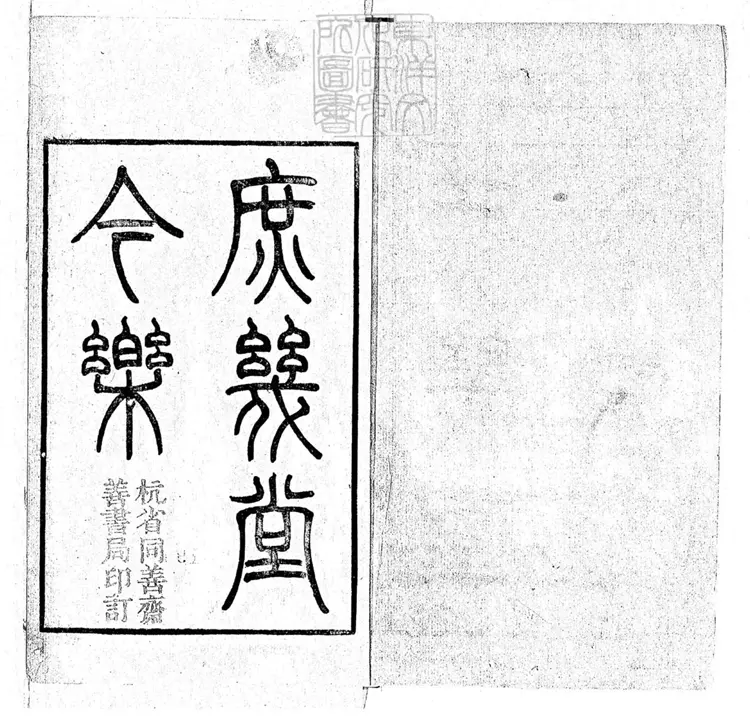 東洋文
化研究
所圖書
庶幾堂
今樂
杭省同善齋
善書局印訂